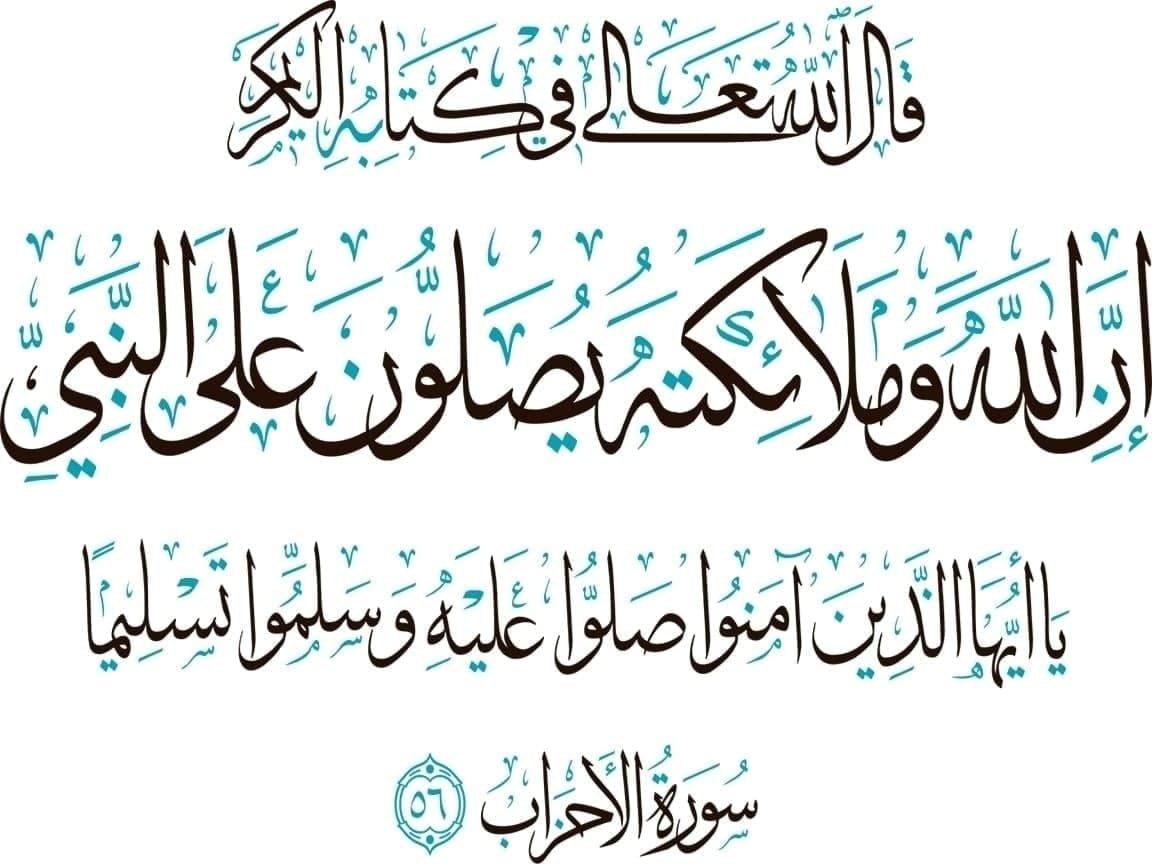 قَالَ اللَّهُ تَعَالَى فِي كِتَابِهِ الْكَرِيمِ
إِنَّ اللَّهَ وَمَلَائِكَتَهُ يُصَلُّونَ عَلَى النَّبِيِّ
يَا أَيُّهَا الَّذِينَ آمَنُوا صَلُّوا عَلَيْهِ وَسَلِّمُوا تَسْلِيمًا
سُورَةُ الْأَحْزَابِ ٥٦